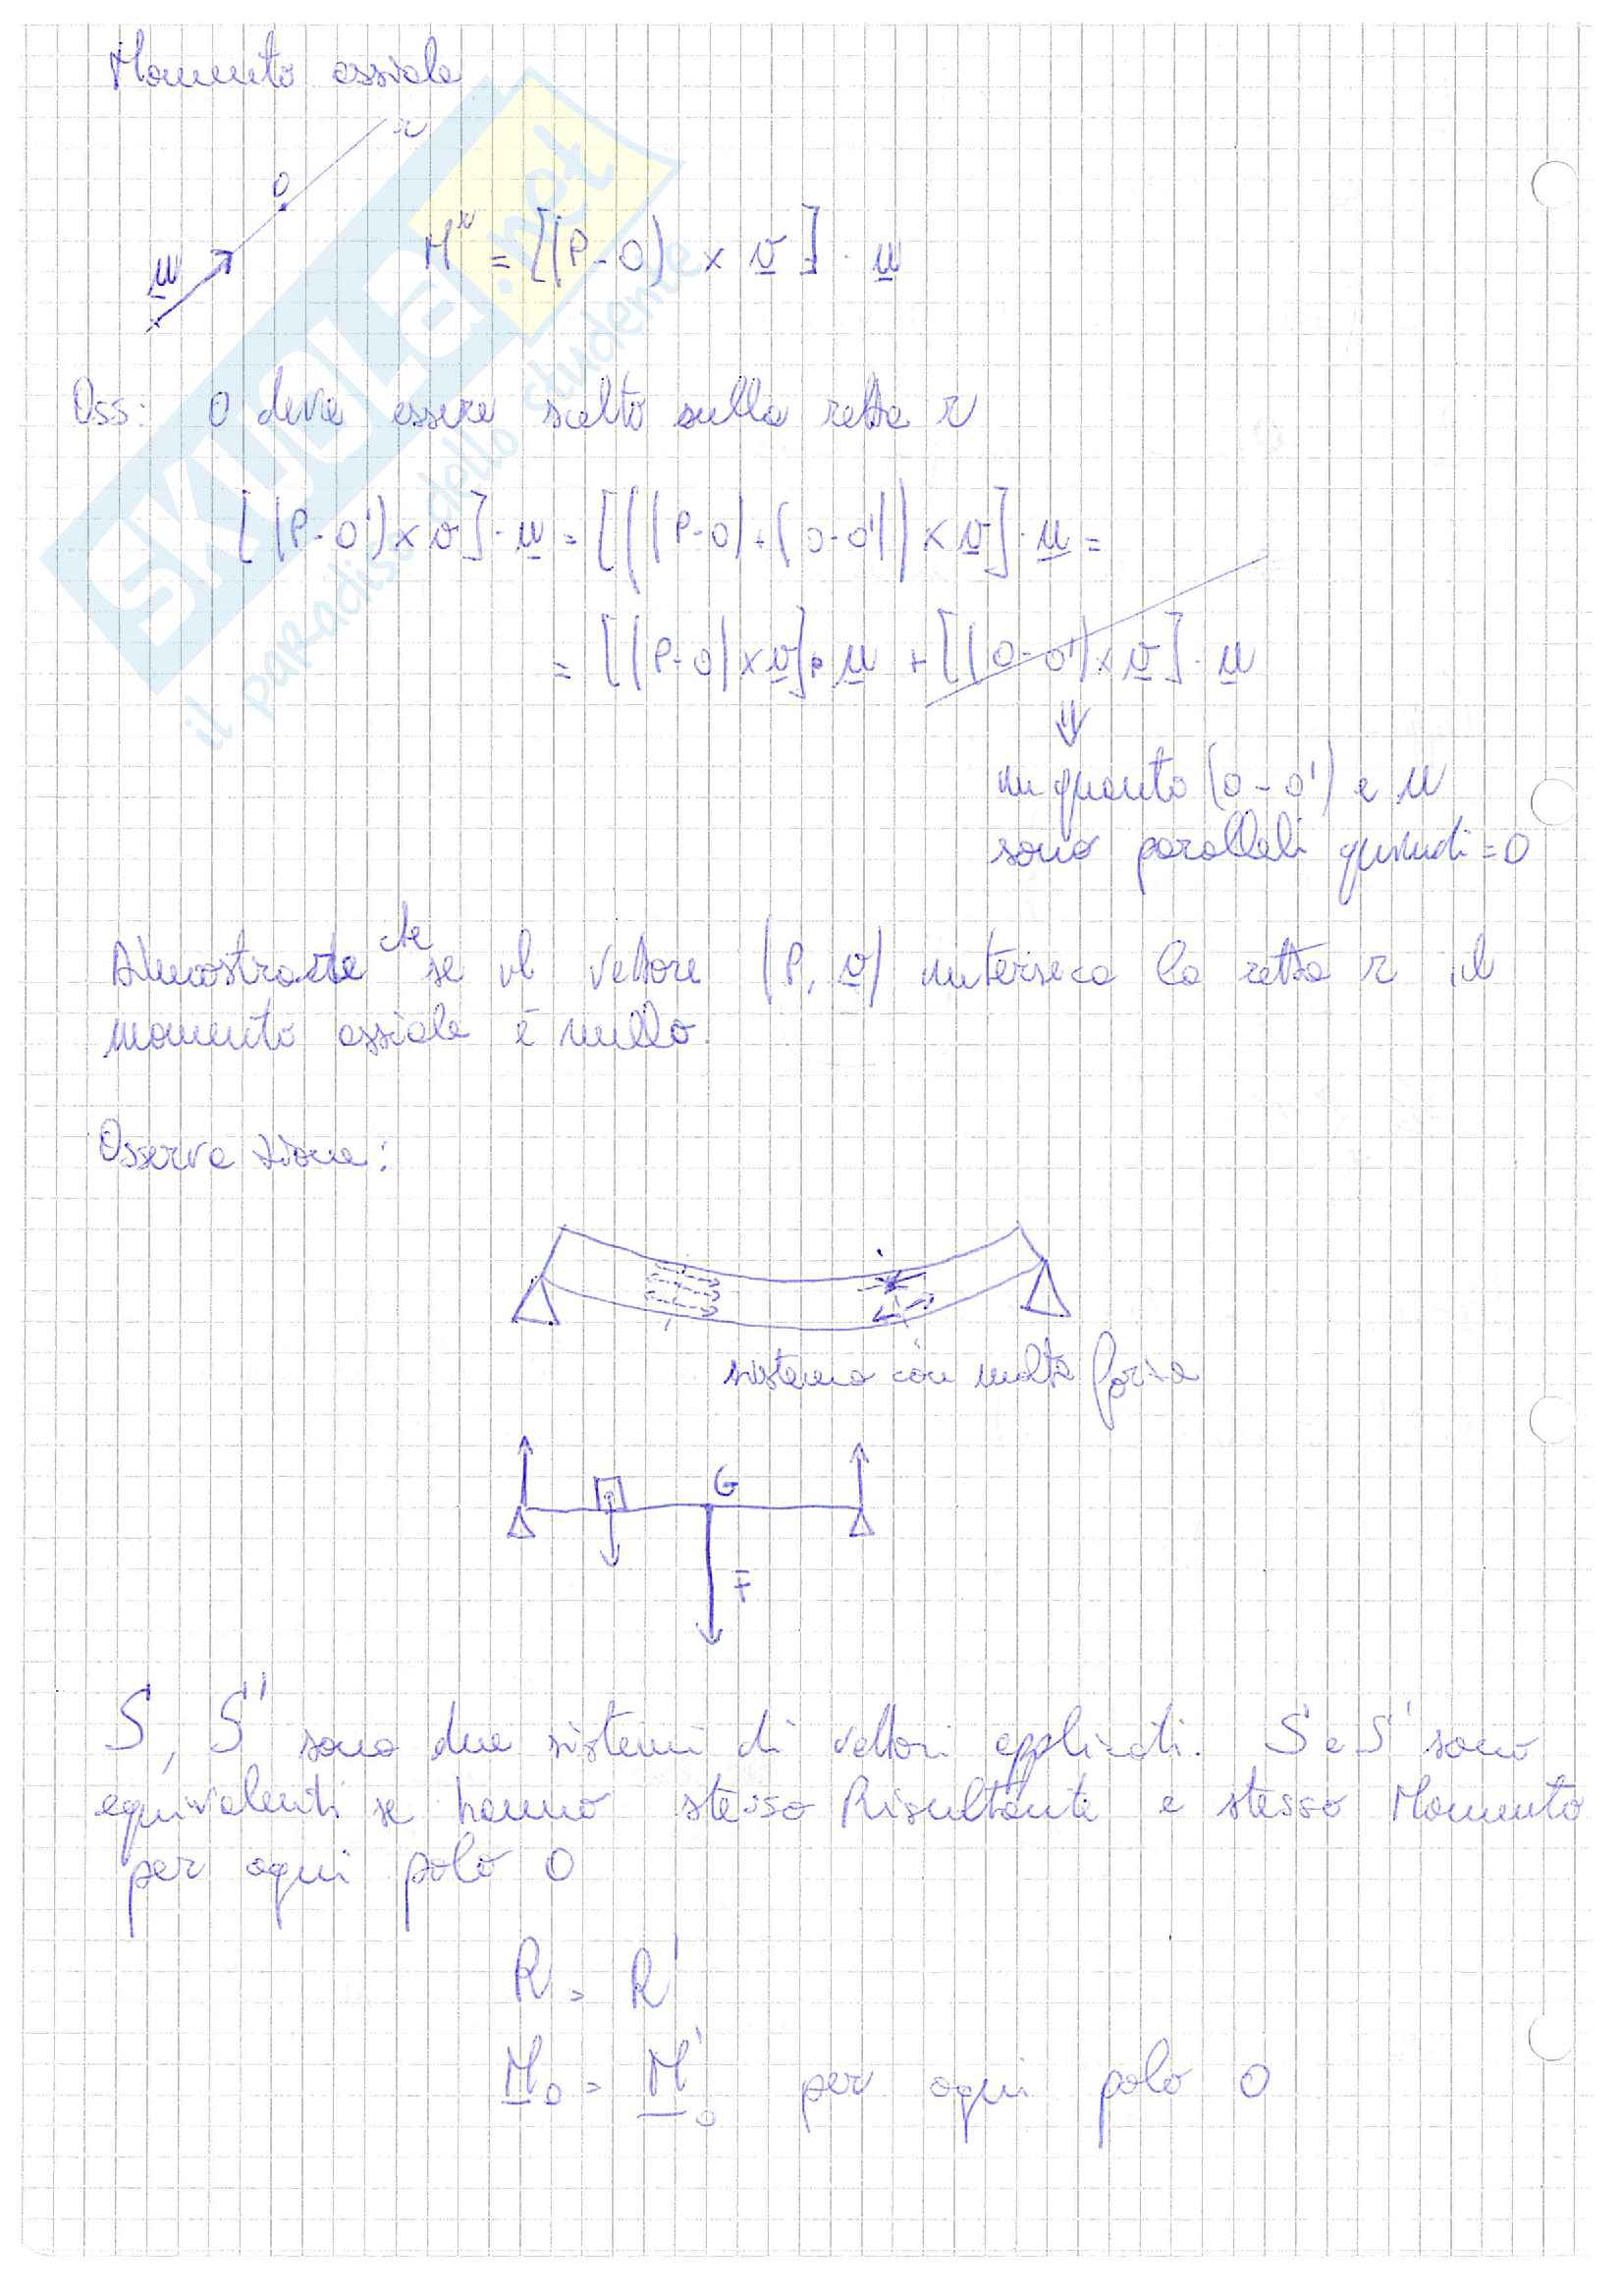 Momento assiale
r
O
u
M^r = [(P-O) × v] · u
Oss: O deve essere scelto sulla retta r
[(P-O') × v] · u = [((P-O)+(O-O')) × v] · u =
= [(P-O) × v] · u + [(O-O') × v] · u
⇓
in quanto (O-O') e u
sono paralleli quindi = 0
Dimostrate che se il vettore (P, v) interseca la retta r il
momento assiale è nullo.
Osservazione:
sistema con molta forza
G
F
S, S' sono due sistemi di vettori applicati. S e S' sono
equivalenti se hanno stesso Risultante e stesso Momento
per ogni polo O
R = R'
M_O = M'_O per ogni polo O
SKUOLA.net
il paradiso dello studente